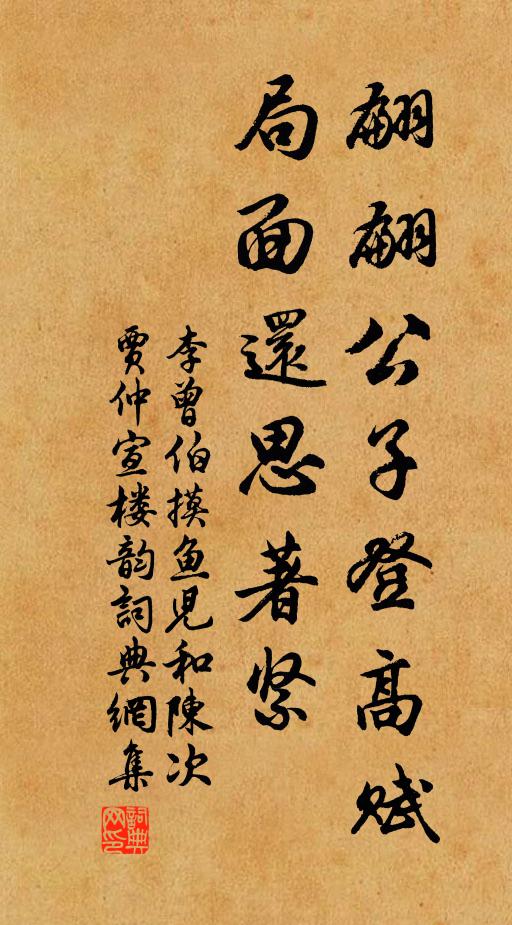 翩翩公子登高賦
局面還思著緊
李曾伯摸魚児和陳次
賈仲宣楼韵詞典網集
詞典网印